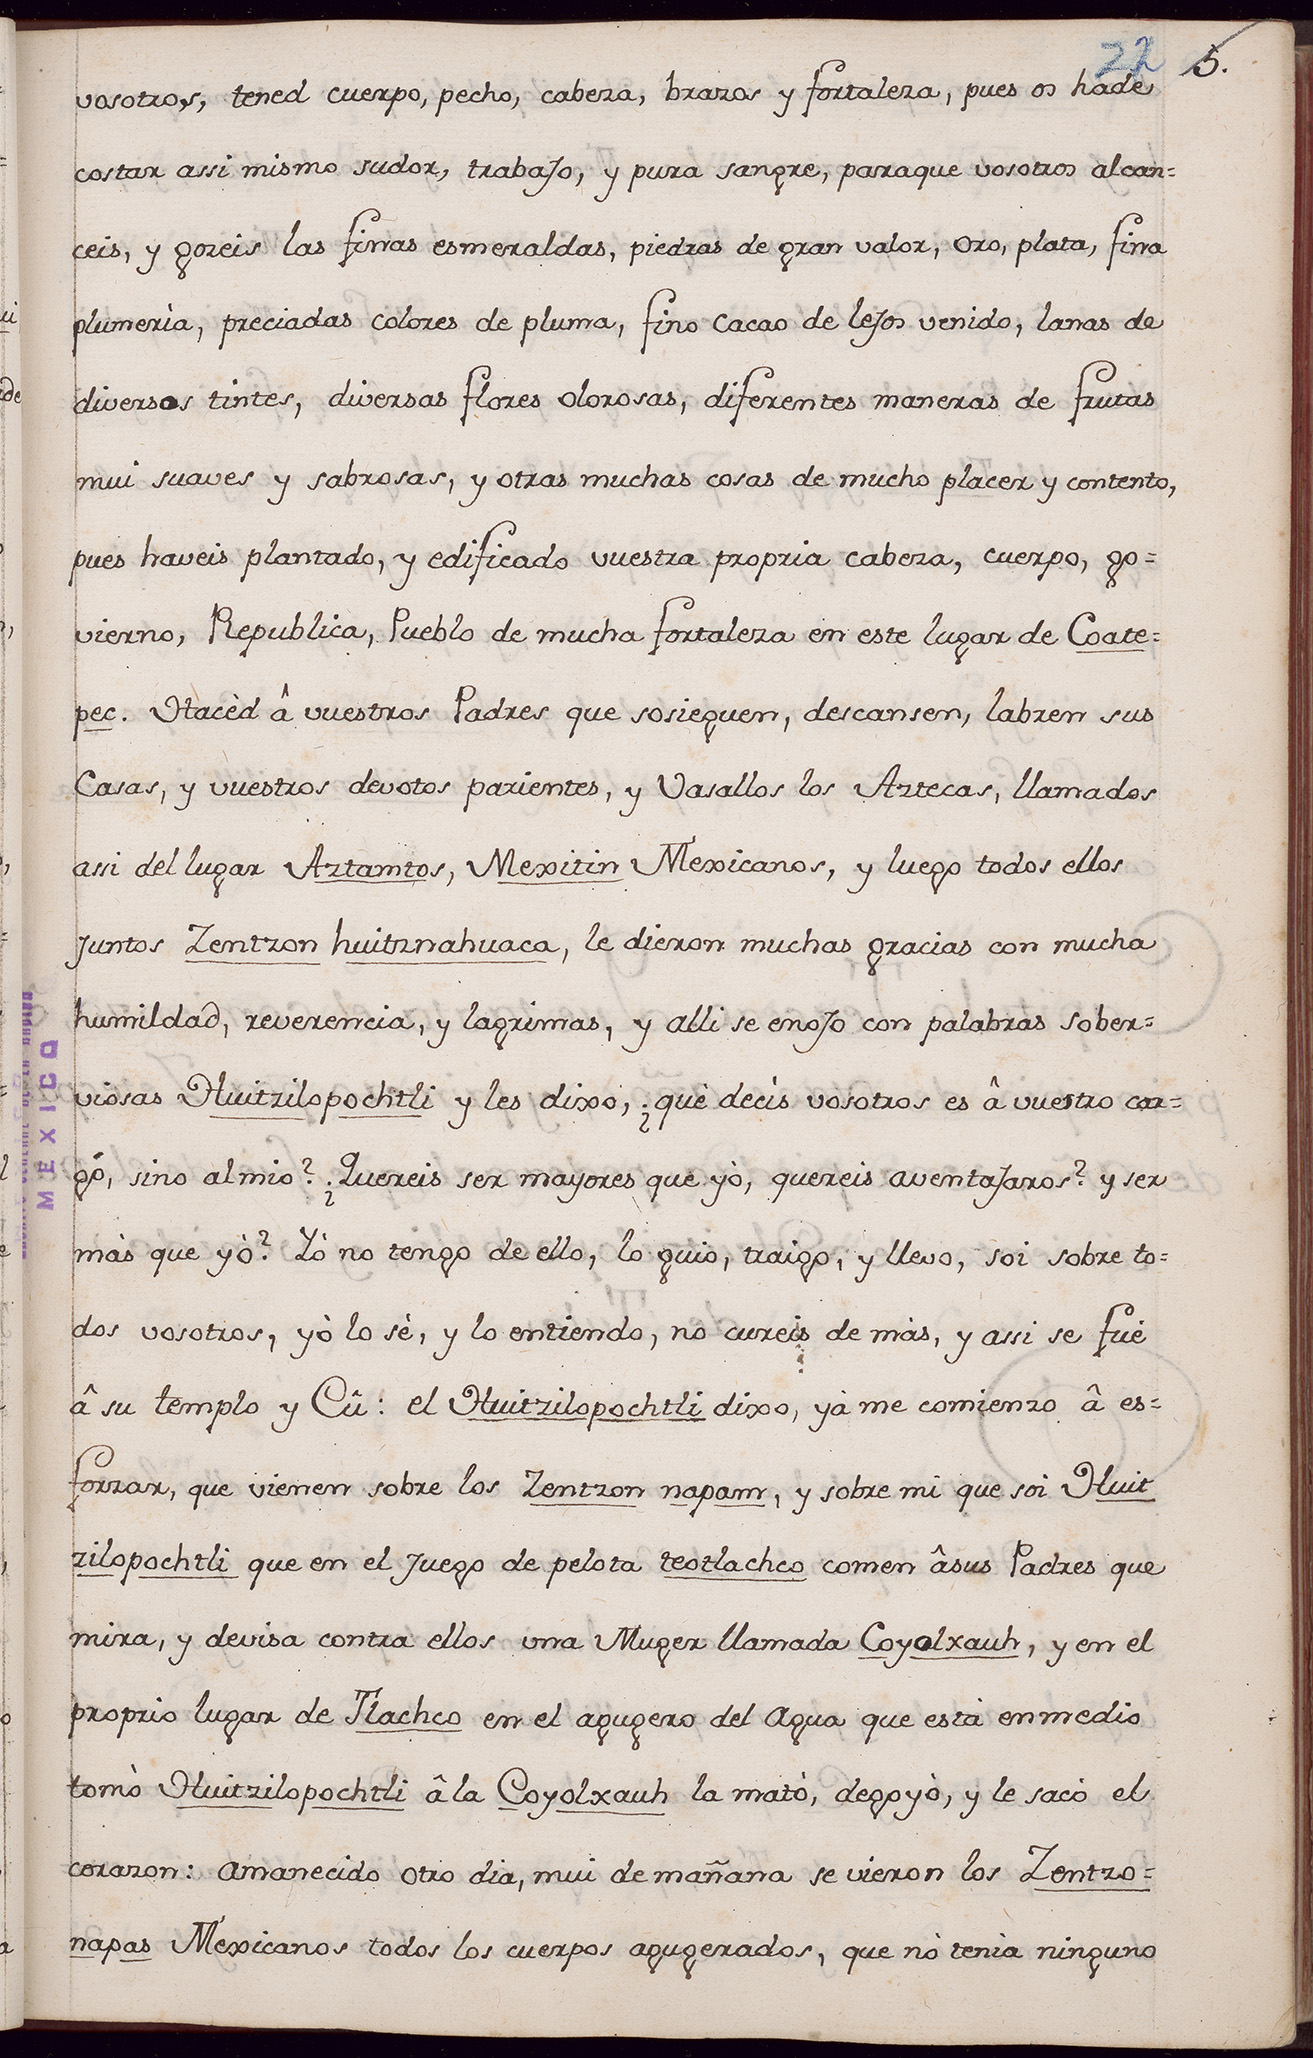 22 5.
vosotros, tened cuerpo, pecho, cabeza, brazos y fortaleza, pues os hade
costar assi mismo sudor, trabajo, y pura sangre, paraque vosotros alcan=
ceis, y gozeis las finas esmeraldas, piedras de gran valor, oro, plata, fina
plumerìa, preciadas colores de pluma, fino cacao de lejos venido, lanas de
diversos tintes, diversas flores olorosas, diferentes maneras de frutas
mui suaves y sabrosas, y otras muchas cosas de mucho placer y contento,
pues haveis plantado, y edificado vuestra propria cabeza, cuerpo, go=
vierno, Republica, Pueblo de mucha fortaleza en este lugar de Coate=
pec. Hacèd â vuestros Padres que sosieguen, descansen, labren sus
Casas, y vuestros devotos parientes, y Vasallos los Aztecas, llamados
assi del lugar Aztamtos, Mexitin Mexicanos, y luego todos ellos
juntos Zentzon huitznahuaca, le dieron muchas gracias con mucha
humildad, reverencia, y lagrimas, y alli se enojo con palabras sober=
viosas Huitzilopochtli y les dixo, ¿què decìs vosotros es â vuestro car=
gó, sino al mio? ¿Quereis ser mayores que yò, quereis aventajaros? y ser
màs que yò? Yò no tengo de ello, lo guio, traigo, y llevo, soi sobre to=
dos vosotros, yò lo sè, y lo entiendo, no cureis de màs, y assi se fuè
â su templo y Cû: el Huitzilopochtli dixo, yà me comienzo â es=
forzar, que vienen sobre los Zentzon napam, y sobre mi que soi Huit
zilopochtli que en el juego de pelota teotlachco comen âsus Padres que
mira, y devisa contra ellos una Muger llamada Coyolxauh, y en el
proprio lugar de Tlachco en el agugero del agua que està enmedio
tomò Huitzilopochtli â la Coyolxauh la matò, degoyò, y le sacò el
corazon: amanecido otro dia, mui de mañana se vieron los Zentzo=
napas Mexicanos todos los cuerpos agugerados, que nò tenìa ninguno
MEXICO